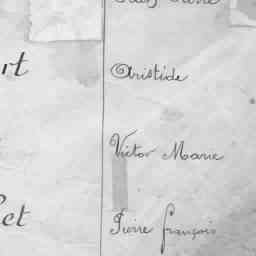 rt Aristide
Victor Marie
et Pierre françois